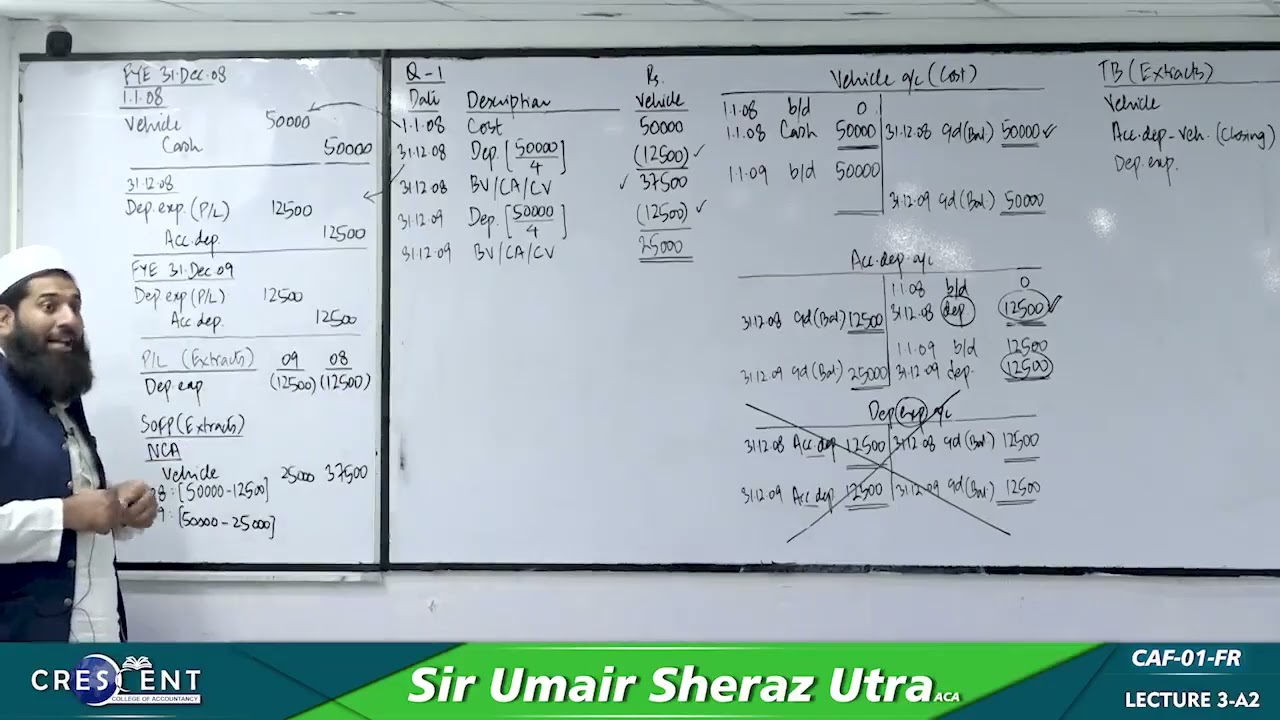 FYE 31.Dec.08
1.1.08
Vehicle 50000
Cash 50000
31.12.08
Dep.exp.(P/L) 12500
Acc.dep. 12500
FYE 31.Dec.09
Dep.exp(P/L) 12500
Acc dep. 12500
P/L (Extracts) 09 08
Dep exp (12500) (12500)
SOFP (Extracts)
NCA
Vehicle 25000 37500
08: [50000-12500]
9: [50000-25000]
Q-1 Rs.
Date Description Vehicle
1.1.08 Cost 50000
31.12.08 Dep. [50000/4] (12500) ✓
31.12.08 BV/CA/CV ✓ 37500
31.12.09 Dep. [50000/4] (12500) ✓
31.12.09 BV/CA/CV 25000
Vehicle a/c (Cost)
1.1.08 b/d 0
1.1.08 Cash 50000 31.12.08 c/d (Bal) 50000 ✓
1.1.09 b/d 50000
31.12.09 c/d (Bal.) 50000
Acc.dep a/c
1.1.08 b/d 0
31.12.08 c/d (Bal) 12500 31.12.08 dep 12500 ✓
1.1.09 b/d 12500
31.12.09 c/d (Bal) 25000 31.12.09 dep. 12500
Dep exp a/c
31.12.08 Acc.dep 12500 31.12.08 c/d (Bal) 12500
31.12.09 Acc dep 12500 31.12.09 c/d (Bal.) 12500
TB (Extracts)
Vehicle
Acc.dep-veh. (Closing)
Dep.exp.
CRESCENT
COLLEGE OF ACCOUNTANCY
Sir Umair Sheraz Utra ACA
CAF-01-FR
LECTURE 3-A2